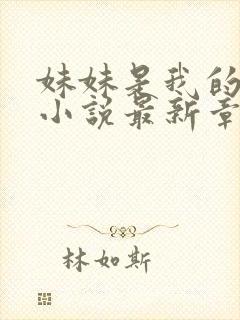 妹妹是我的
小说最新章
林如斯